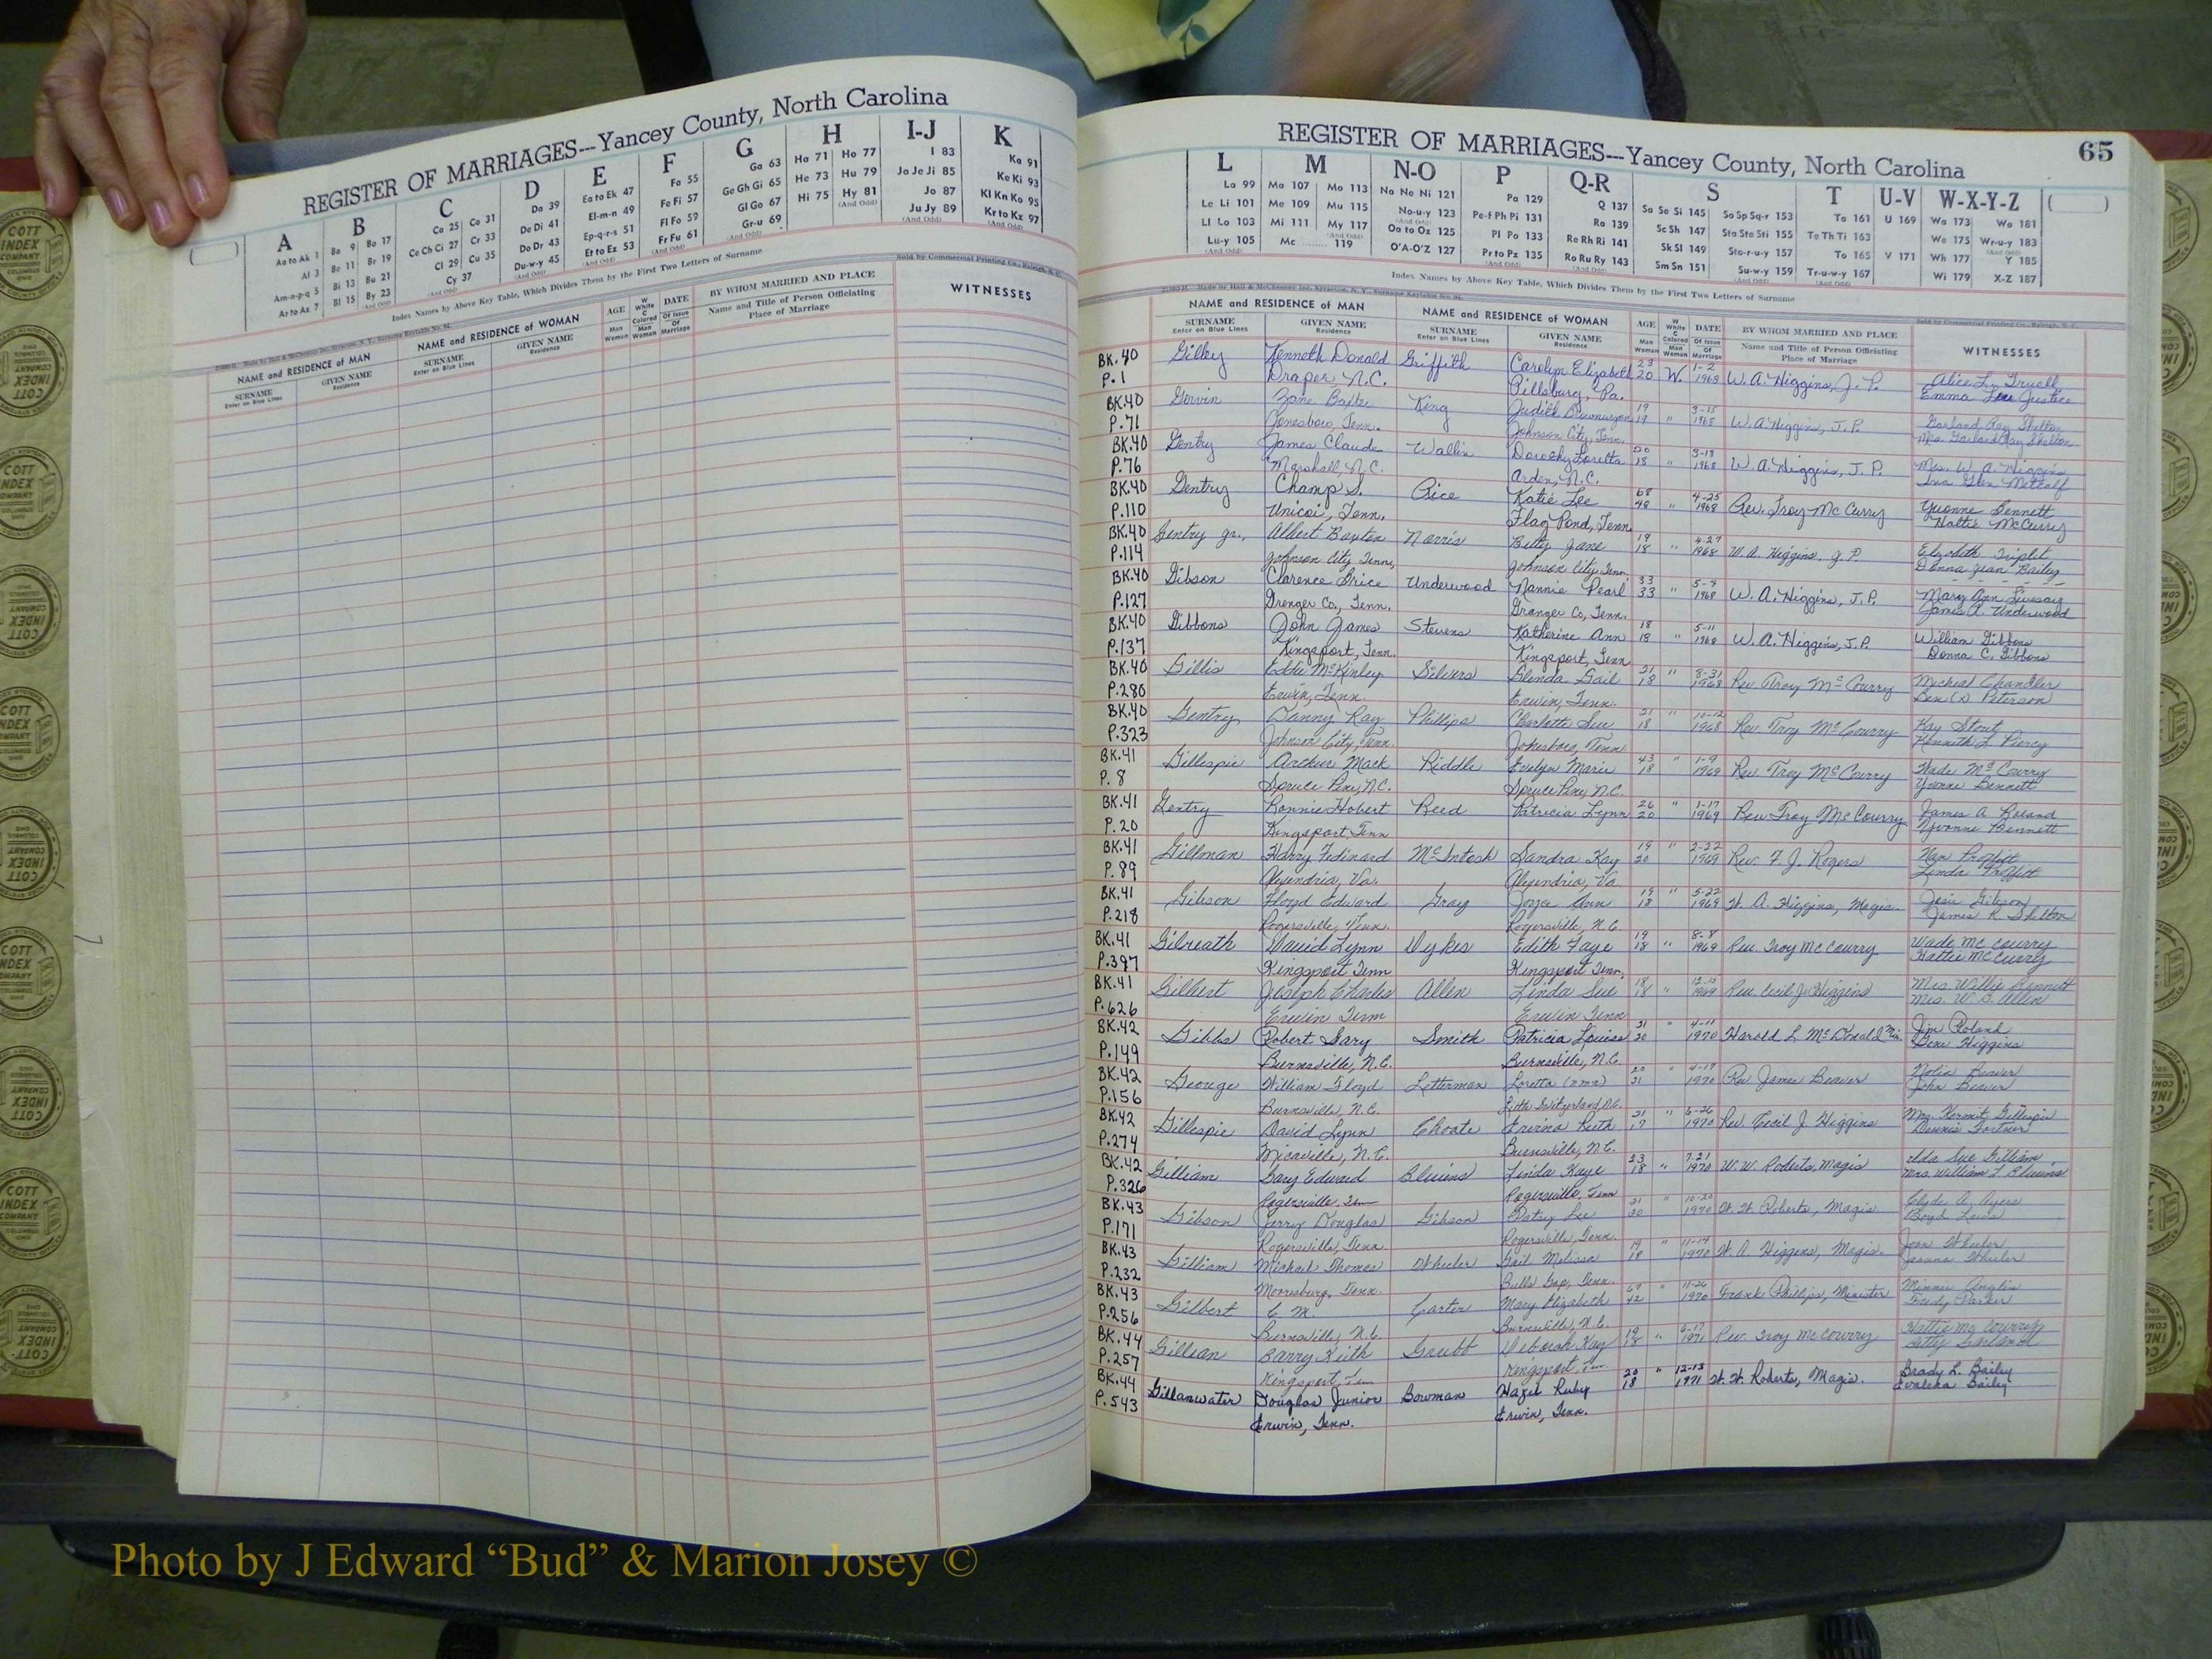 REGISTER OF MARRIAGES---Yancey County, North Carolina
A B C D E F G H I-J K
Aa to Ak 1
Al 3
Am-n-p-q 5
Ar to Az 7
Ba 9 Bo 17
Be 11 Br 19
Bi 13 Bu 21
Bl 15 By 23
Ca 25 Co 31
Ce Ch Ci 27 Cr 33
Cl 29 Cu 35
Cy 37
Da 39
De Di 41
Do Dr 43
Du-w-y 45
Ea to Ek 47
El-m-n 49
Ep-q-r-s 51
Et to Ez 53
Fa 55
Fe Fi 57
Fl Fo 59
Fr Fu 61
Ga 63
Ge Gh Gi 65
Gl Go 67
Gr-u 69
Ha 71 Ho 77
He 73 Hu 79
Hi 75 Hy 81
I 83
Ja Je Ji 85
Jo 87
Ju Jy 89
Ka 91
Ke Ki 93
Kl Kn Ko 95
Kr to Kz 97
Index Names by Above Key Table, Which Divides Them by the First Two Letters of Surname
NAME and RESIDENCE of MAN
SURNAME Enter on Blue Lines
GIVEN NAME Residence
NAME and RESIDENCE OF WOMAN
SURNAME Enter on Blue Lines
GIVEN NAME Residence
AGE Man Woman
W White C Colored Man Woman
DATE Of Issue Of Marriage
BY WHOM MARRIED AND PLACE
Name and Title of Person Officiating
Place of Marriage
WITNESSES
REGISTER OF MARRIAGES---Yancey County, North Carolina
65
L M N-O P Q-R S T U-V W-X-Y-Z
La 99
Le Li 101
Ll Lo 103
Lu-y 105
Ma 107 Mo 113
Me 109 Mu 115
Mi 111 My 117
Mc 119
Na Ne Ni 121
No-u-y 123
Oa to Oz 125
O'A-O'Z 127
Pa 129
Pe-f Ph Pi 131
Pl Po 133
Pr to Pz 135
Q 137
Ra 139
Re Rh Ri 141
Ro Ru Ry 143
Sa Se Si 145 So Sp Sq-r 153
Sc Sh 147 Sta Ste Sti 155
Sk Sl 149 Sto-r-u-y 157
Sm Sn 151 Su-w-y 159
Ta 161
Te Th Ti 163
To 165
Tr-u-w-y 167
U 169
V 171
Wa 173 Wo 181
We 175 Wr-u-y 183
Wh 177 Y 185
Wi 179 X-Z 187
Index Names by Above Key Table, Which Divides Them by the First Two Letters of Surname
NAME and RESIDENCE of MAN
NAME and RESIDENCE OF WOMAN
SURNAME Enter on Blue Lines
GIVEN NAME Residence
SURNAME Enter on Blue Lines
GIVEN NAME Residence
AGE Man Woman
W White C Colored Man Woman
DATE Of Issue Of Marriage
BY WHOM MARRIED AND PLACE
Name and Title of Person Officiating
Place of Marriage
WITNESSES
BK.40 Gilley Kenneth Donald Griffith Carolyn Elizabeth 23 W. 1-2 W.A. Higgins, J.P. Alice L. Truell
P.1 Draper, N.C. Pillsburg, Pa. 20 1968 Emma Lee Justice
BK.40 Zane King Judith 19 " 3-15 W.A. Higgins, J.P. Garland Ray Shelton
P.71 Jonesboro, Tenn. Johnson City, Tenn. 19 1968 Mrs. Garland Ray Shelton
BK.40 Gentry James Claude Wallin Dorothy Loretta 20 " 3-18 W.A. Higgins, J.P. Mrs. W. A. Higgins
P.76 Marshall, N.C. Arden, N.C. 18 1968 Metcalf
BK.40 Gentry Champ S. Rice Katie Lee 68 " 4-25 Rev. Troy McCurry Yvonne Bennett
P.110 Unicoi, Tenn. Flag Pond, Tenn. 48 1968 Hattie McCurry
BK.40 Gentry Jr., Albert Baxton Norris Betty Jane 19 " 4-27 W.A. Higgins, J.P. Elizabeth Triplet
P.114 Johnson City Tenn, Johnson City Tenn. 18 1968 Donna Jean Bailey
BK.40 Gibson Clarence Price Underwood Nannie Pearl 33 " 5-4 W.A. Higgins, J.P. Mary Ann Livesay
P.127 Grenger Co., Tenn. Granger Co, Tenn. 33 1968 James A. Underwood
BK.40 Gibbons John James Stevens Katherine Ann 18 " 5-11 W.A. Higgins, J.P. William Gibbons
P.137 Kingsport, Tenn. Kingsport, Tenn 18 1968 Donna C. Gibbons
BK.40 Gillis Eddie McKinley Silvers Glenda Gail 21 " 8-31 Rev. Troy McCourry Micheal Chandler
P.280 Erwin, Tenn. Erwin, Tenn. 18 1968 Ben (x) Peterson
BK.40 Gentry Danny Ray Phillips Charlotte Sue 21 " 10-12 Rev. Troy McCourry Kay Stout
P.323 Johnson City, Tenn. Jonesboro, Tenn 18 1968 Kenneth L. Piercy
BK.41 Gillespie Arthur Mack Riddle Evelyn Marie 43 " 1-9 Rev. Troy McCourry Wade McCourry
P.8 Spruce Pine, N.C. Spruce Pine, N.C. 18 1969 Yvonne Bennett
BK.41 Gentry Ronnie Hobert Reed Patricia Lynn 26 " 1-17 Rev. Troy McCourry James A Roland
P.20 Kingsport, Tenn 20 1969 Yvonne Bennett
BK.41 Gillman Harry Fedinard McIntosh Sandra Kay 19 " 2-22 Rev. F. J. Rogers Nan Proffitt
P.89 Alexendria, Va. Alexendria, Va. 20 1969 Linda Proffitt
BK.41 Gibson Floyd Edward Gray Joyce Ann 19 " 5-22 W.A. Higgins, Magis. Gibson
P.218 Rogersville, Tenn. Rogersville, N.C. 18 1969 James R. Shelton
BK.41 Gilreath David Lynn Dykes Edith Faye 19 " 8-8 Rev. Troy McCourry Wade McCourry
P.397 Kingsport Tenn Kingsport Tenn. 18 1969 Hattie McCurry
BK.41 Gilbert Joseph Charles Allen Linda Sue 18 " 12-15 Rev. Cecil J. Higgins Mrs Willie Bennett
P.626 Erwin Tenn Erwin Tenn 18 1969 Mrs. W. S. Allen
BK.42 Gibbs Robert Gary Smith Patricia Louise 21 " 4-11 Harold L McDonald Min. Jim Roland
P.149 Burnsville, N.C. Burnsville, N.C. 20 1970 Gene Higgins
BK.42 George William Floyd Letterman Loretta (nmn) 20 " 4-17 Rev James Beaver Beaver
P.156 Burnsville, N.C. Little Switzerland, N.C. 21 1970 John Beaver
BK.42 Gillespie David Lynn Choate Ruth 21 " 6-26 Rev Cecil J. Higgins Mrs. Kermit Gillespie
P.274 Micaville, N.C. Burnsville, N.C. 17 1970 Dennis Fortner
BK.42 Gilliam Gary Edward Blevins Linda Kaye 23 " 7-21 W.W. Roberts, Magis Ada Sue Gilliam
P.326 Rogersville, Ten Rogersville, Tenn 18 1970 Mrs. William T. Blevins
BK.43 Gibson Jerry Douglas Gibson Patsy Lee 21 " 10-20 W.W. Roberts, Magis Clyde A. Ayers
P.171 Rogersville, Tenn. Rogersville, Tenn. 20 1970 Boyd Lewis
BK.43 Gilliam Michael Thomas Wheeler Gail Melissa 19 " 11-14 W.A. Higgins, Magis. Joan Wheeler
P.232 Mooresburg, Tenn. Bulls Gap, Tenn. 18 1970 Wheeler
BK.43 Gilbert C. M. Carter Mary Elizabeth 69 " 11-26 Frank Phillips, Minister Minnie Anglin
P.256 Burnsville, N.C. Burnsville, N.C. 42 1970 Parker
BK.44 Gillian Barry Keith Grubb Deborah Kay 19 " 6-17 Rev. Troy McCourry Hattie McCourry
P.257 Kingsport, Ten Kingsport, Ten 18 1971 Betty
BK.44 Gillanwater Douglas Junior Bowman Hazel Ruby 20 " 12-13 W.W. Roberts, Magis. Brady L. Bailey
P.543 Erwin, Tenn. Erwin, Tenn. 18 1971 Evaleka Bailey
Photo by J Edward “Bud” & Marion Josey ©
COTT INDEX COMPANY COLUMBUS OHIO